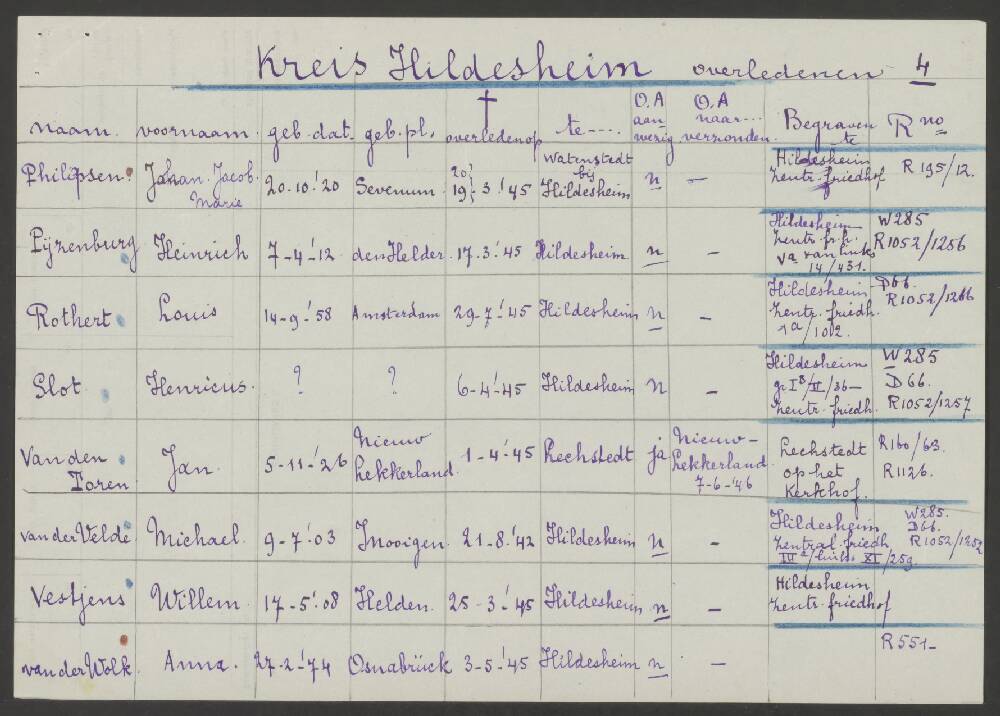 Kreis Hildesheim overledenen 4
naam. voornaam. geb. dat. geb. pl. † overleden op te ---- O.A aan- wezig O.A naar... verzonden. Begraven te R no
Philipsen. Johan. Jacob. Marie 20-10-'20 Sevenum. 20/19 } 3 '45 Watenstedt bij Hildesheim n – Hildesheim Zentr. friedhof R 195/12.
Pijzenburg Heinrich 7-4-'12 den Helder. 17.3.'45 Hildesheim n – Hildesheim Zentr. fr.h. Va van links 14/431. W285 R1052/1256
Rothert. Louis 14-9-'58 Amsterdam 29-7-'45 Hildesheim n – Hildesheim Zentr. friedh. 1a/1002. D66. R1052/1266
Slot. Henricus. ? ? 6-4-'45 Hildesheim n – Hildesheim gr IB/II/36- Zentr. friedh. W285 D66. R1052/1257
Van den Toren Jan. 5-11-'26 Nieuw Lekkerland. 1-4-'45 Rechstedt ja Nieuw- Lekkerland. 7-6-'46 Lechstedt op het Kerkhof. R160/63. R1126.
van der Velde Michael. 9-7-'03 21-8.'42 Hildesheim n – Hildesheim Zentral. friedh. IVa/links XI/259. W285. D66. R1052/1252
Vestjens Willem. 17-5-'08 Helden. 25-3-'45 Hildesheim n – Hildesheim Zentr. friedhof
van der Wolk. Anna. 27-2-'74 Osnabrück 3-5-'45 Hildesheim n – R551-